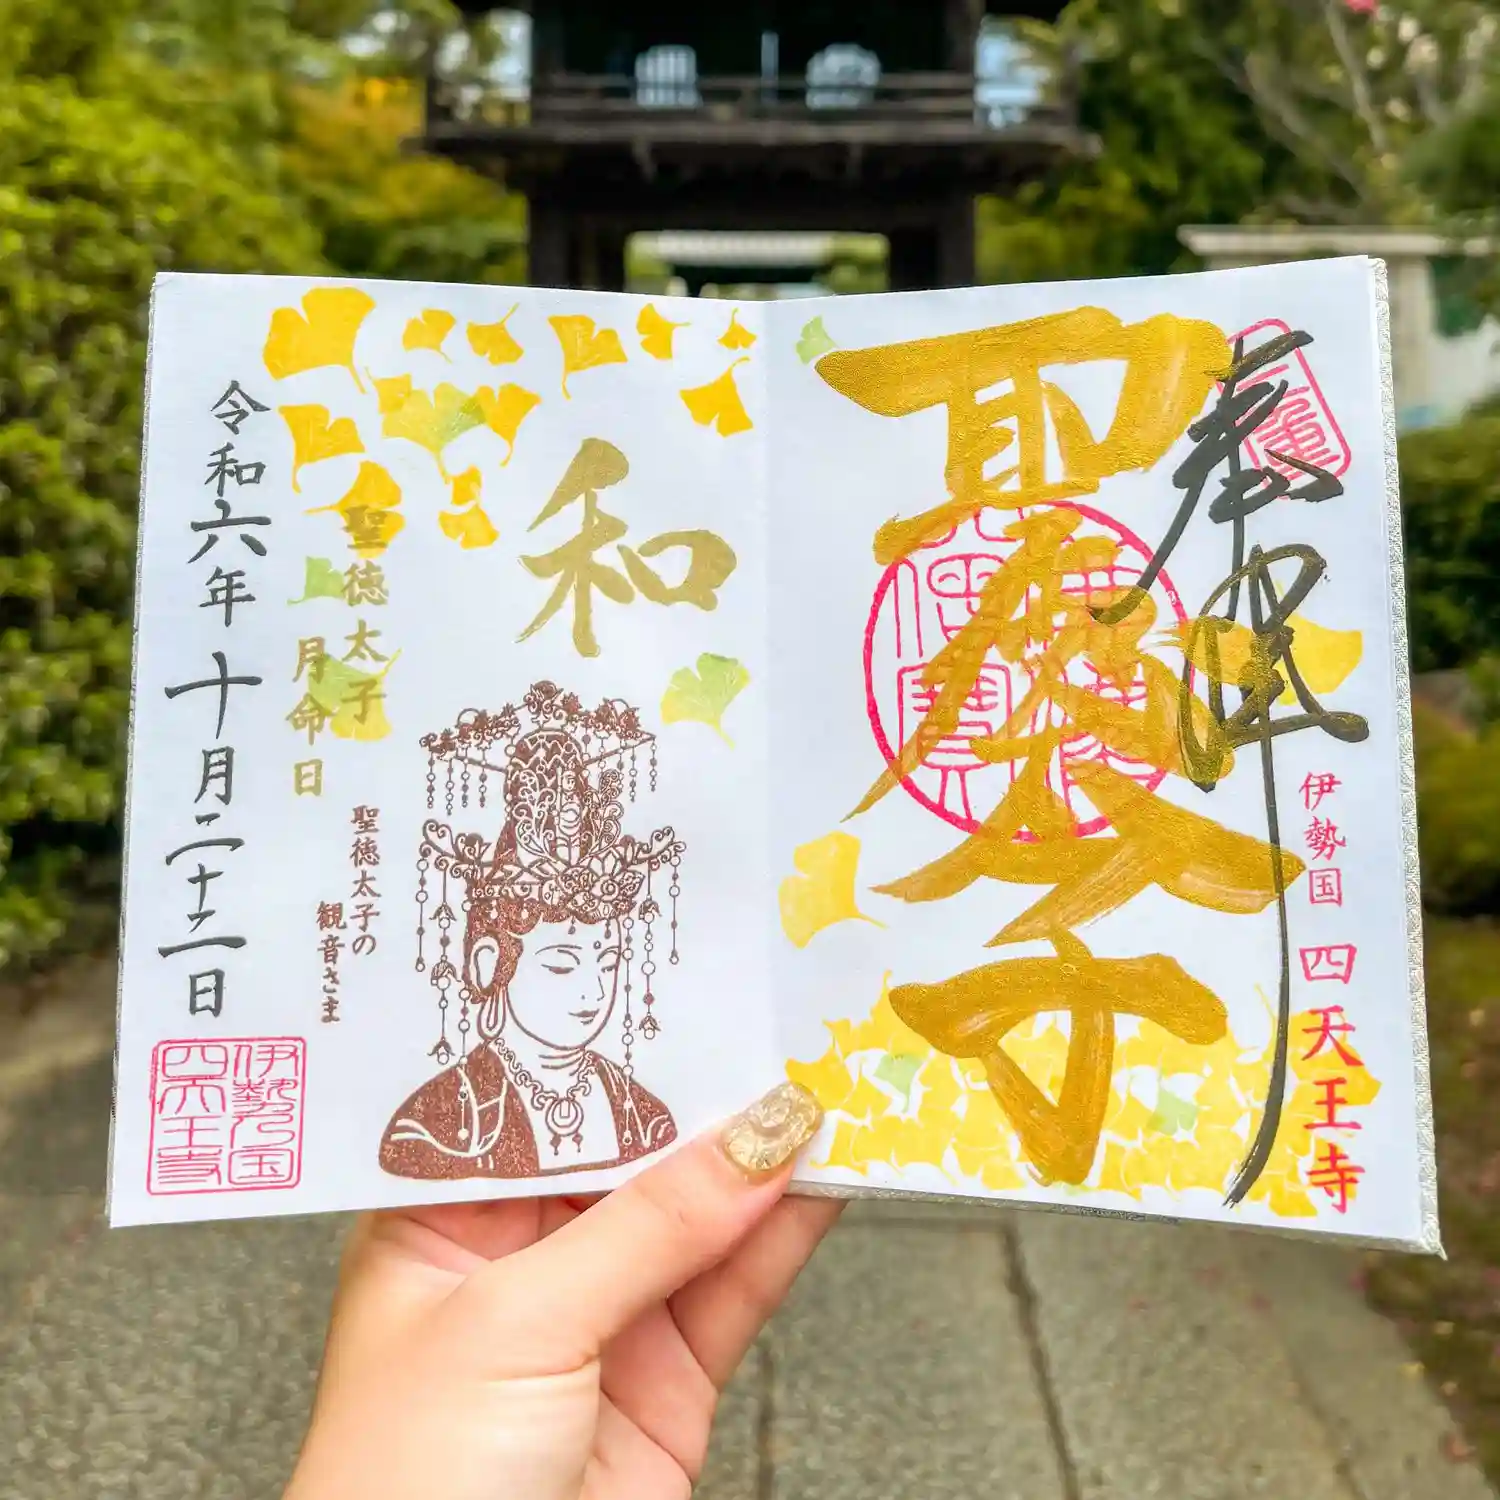 奉拝
三重
聖徳太子
仏法僧宝
伊勢国 四天王寺
和
聖徳太子
月命日
聖徳太子の
観音さま
令和六年十月二十二日
伊勢国
四天王寺